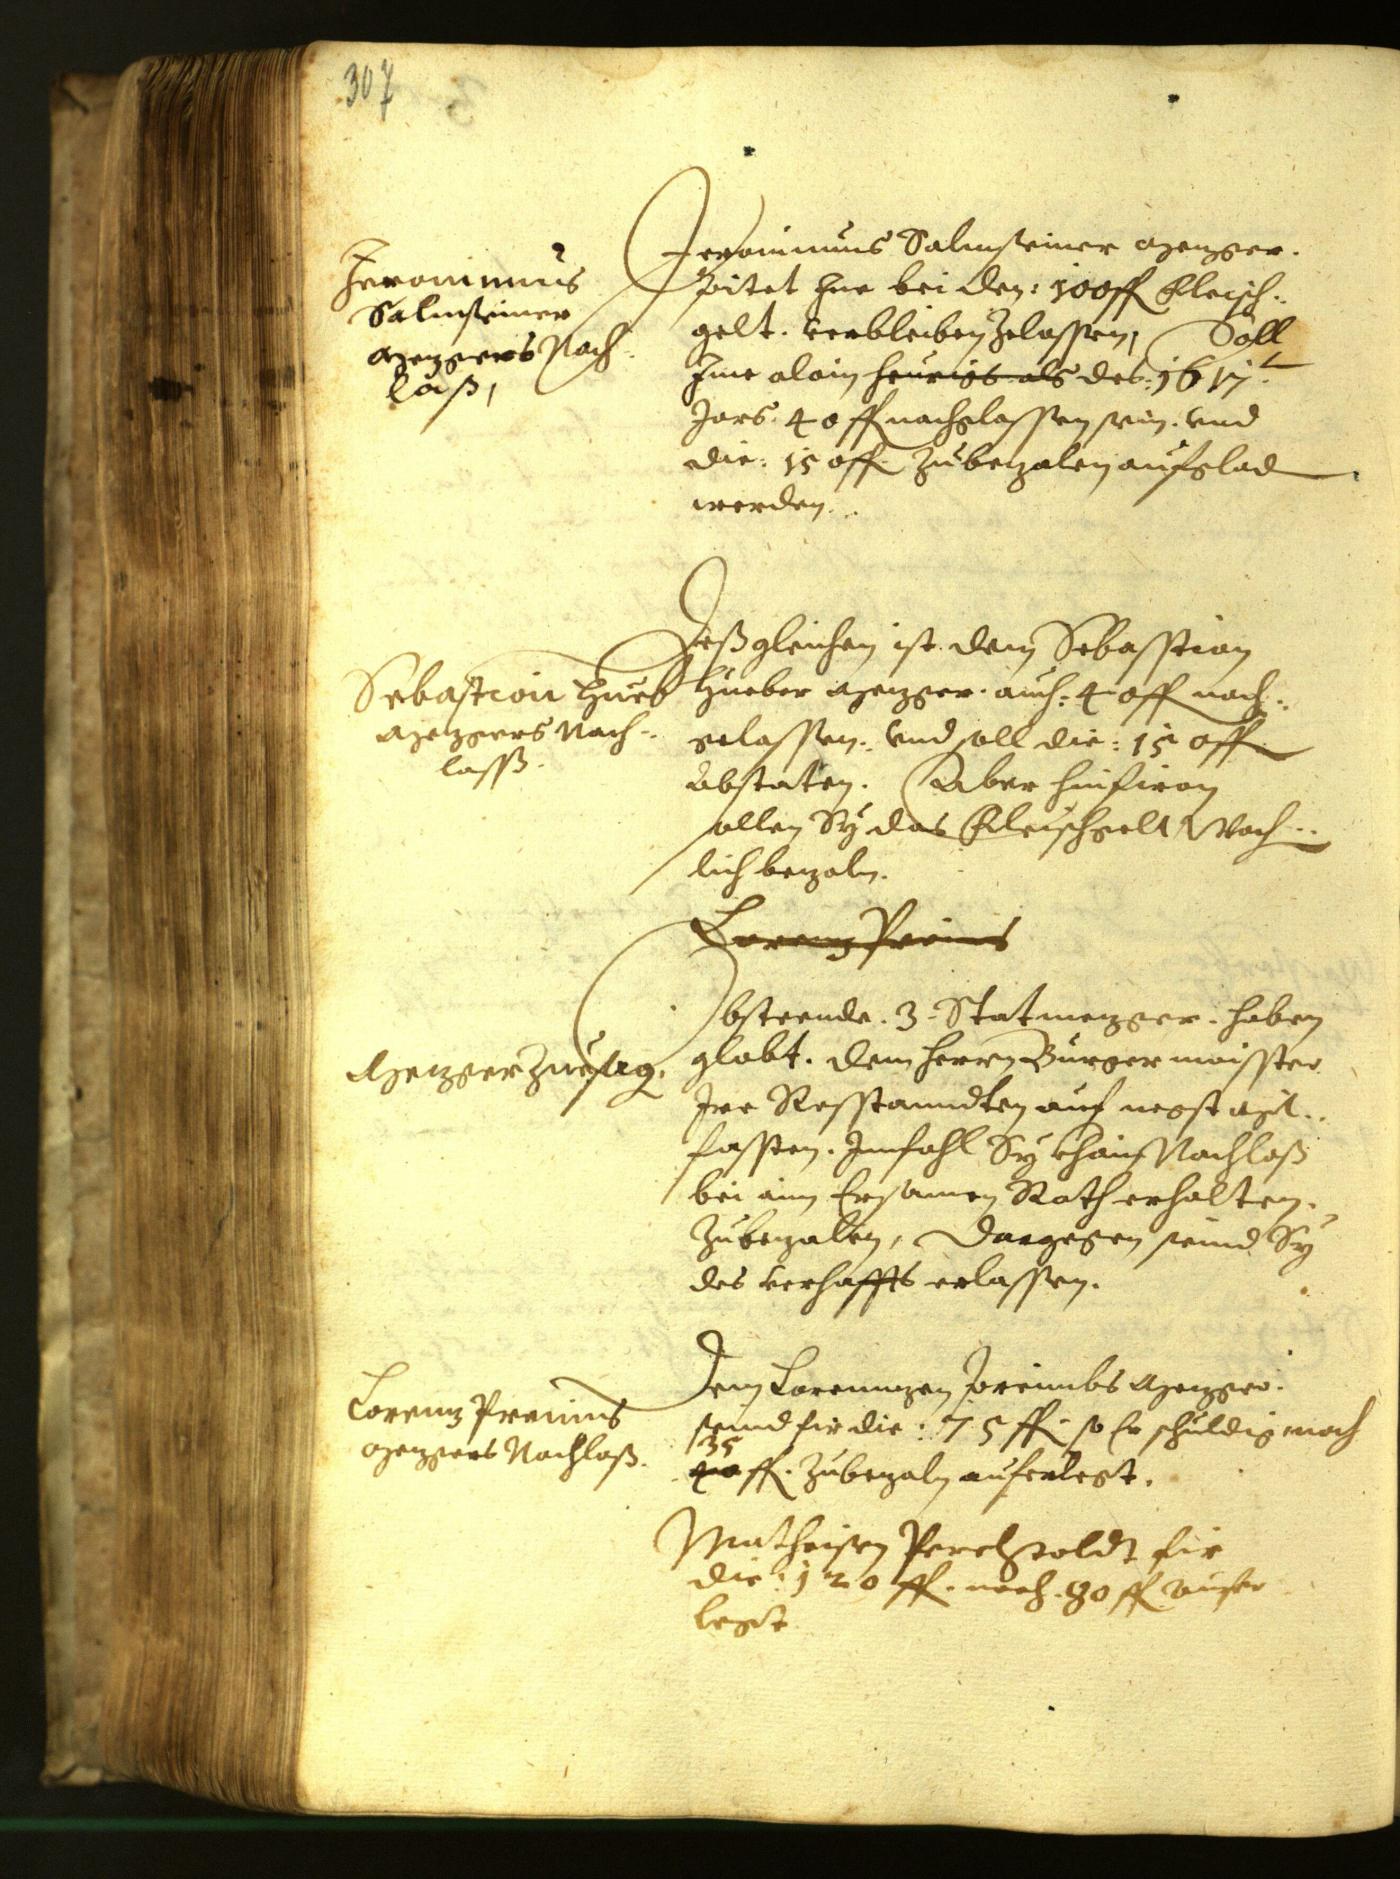 307
Jeronimus
Salmsteiner
Mezgers Nach-
laß,
Jeronimuus Salmsteiner Mezger.
pitet Ine bei den: 100 fl Fleisch-
gelt. verbleiben zelassen, Soll
Ime alain heurigs als des: 1617.t
Jars. 40 fl nachglassen sein. vnd
die: 150 fl zubezalen aufglad
werden.
Sebastion Hueb
Mezgers Nach-
lasß.
Deßgleichen ist dem Sebasstian
Hueber Mezger. auch: 40 fl nach-
gelassen. Vnd soll die: 150 fl
abstaten. Aber hinfiran
sollen Sy das Fleischgelt Woch-
lich bezaln.
Lorenz Preims
Mezger
Obsteende. 3. Statmezger. haben
globt. dem herrn Burgermaisster
Ire Resstanndten auf negst
fassten. Imfahl Sy khain Nachlaß
bei aim Ersamen Rath erhalten.
Zubezalen, Dargegen seind Sy
des verhaffts erlassen.
Lorenz Preims
Mezgers Nachlaß.
Dem Lorennzen Preimbs Mezger.
seind fir die: 75 fl. so Er schuldig noch
35
40 fl. Zubezaln auferlegt.
Matheisen Perchtoldt fir
die: 120 fl. noch. 80 fl aufer
legt